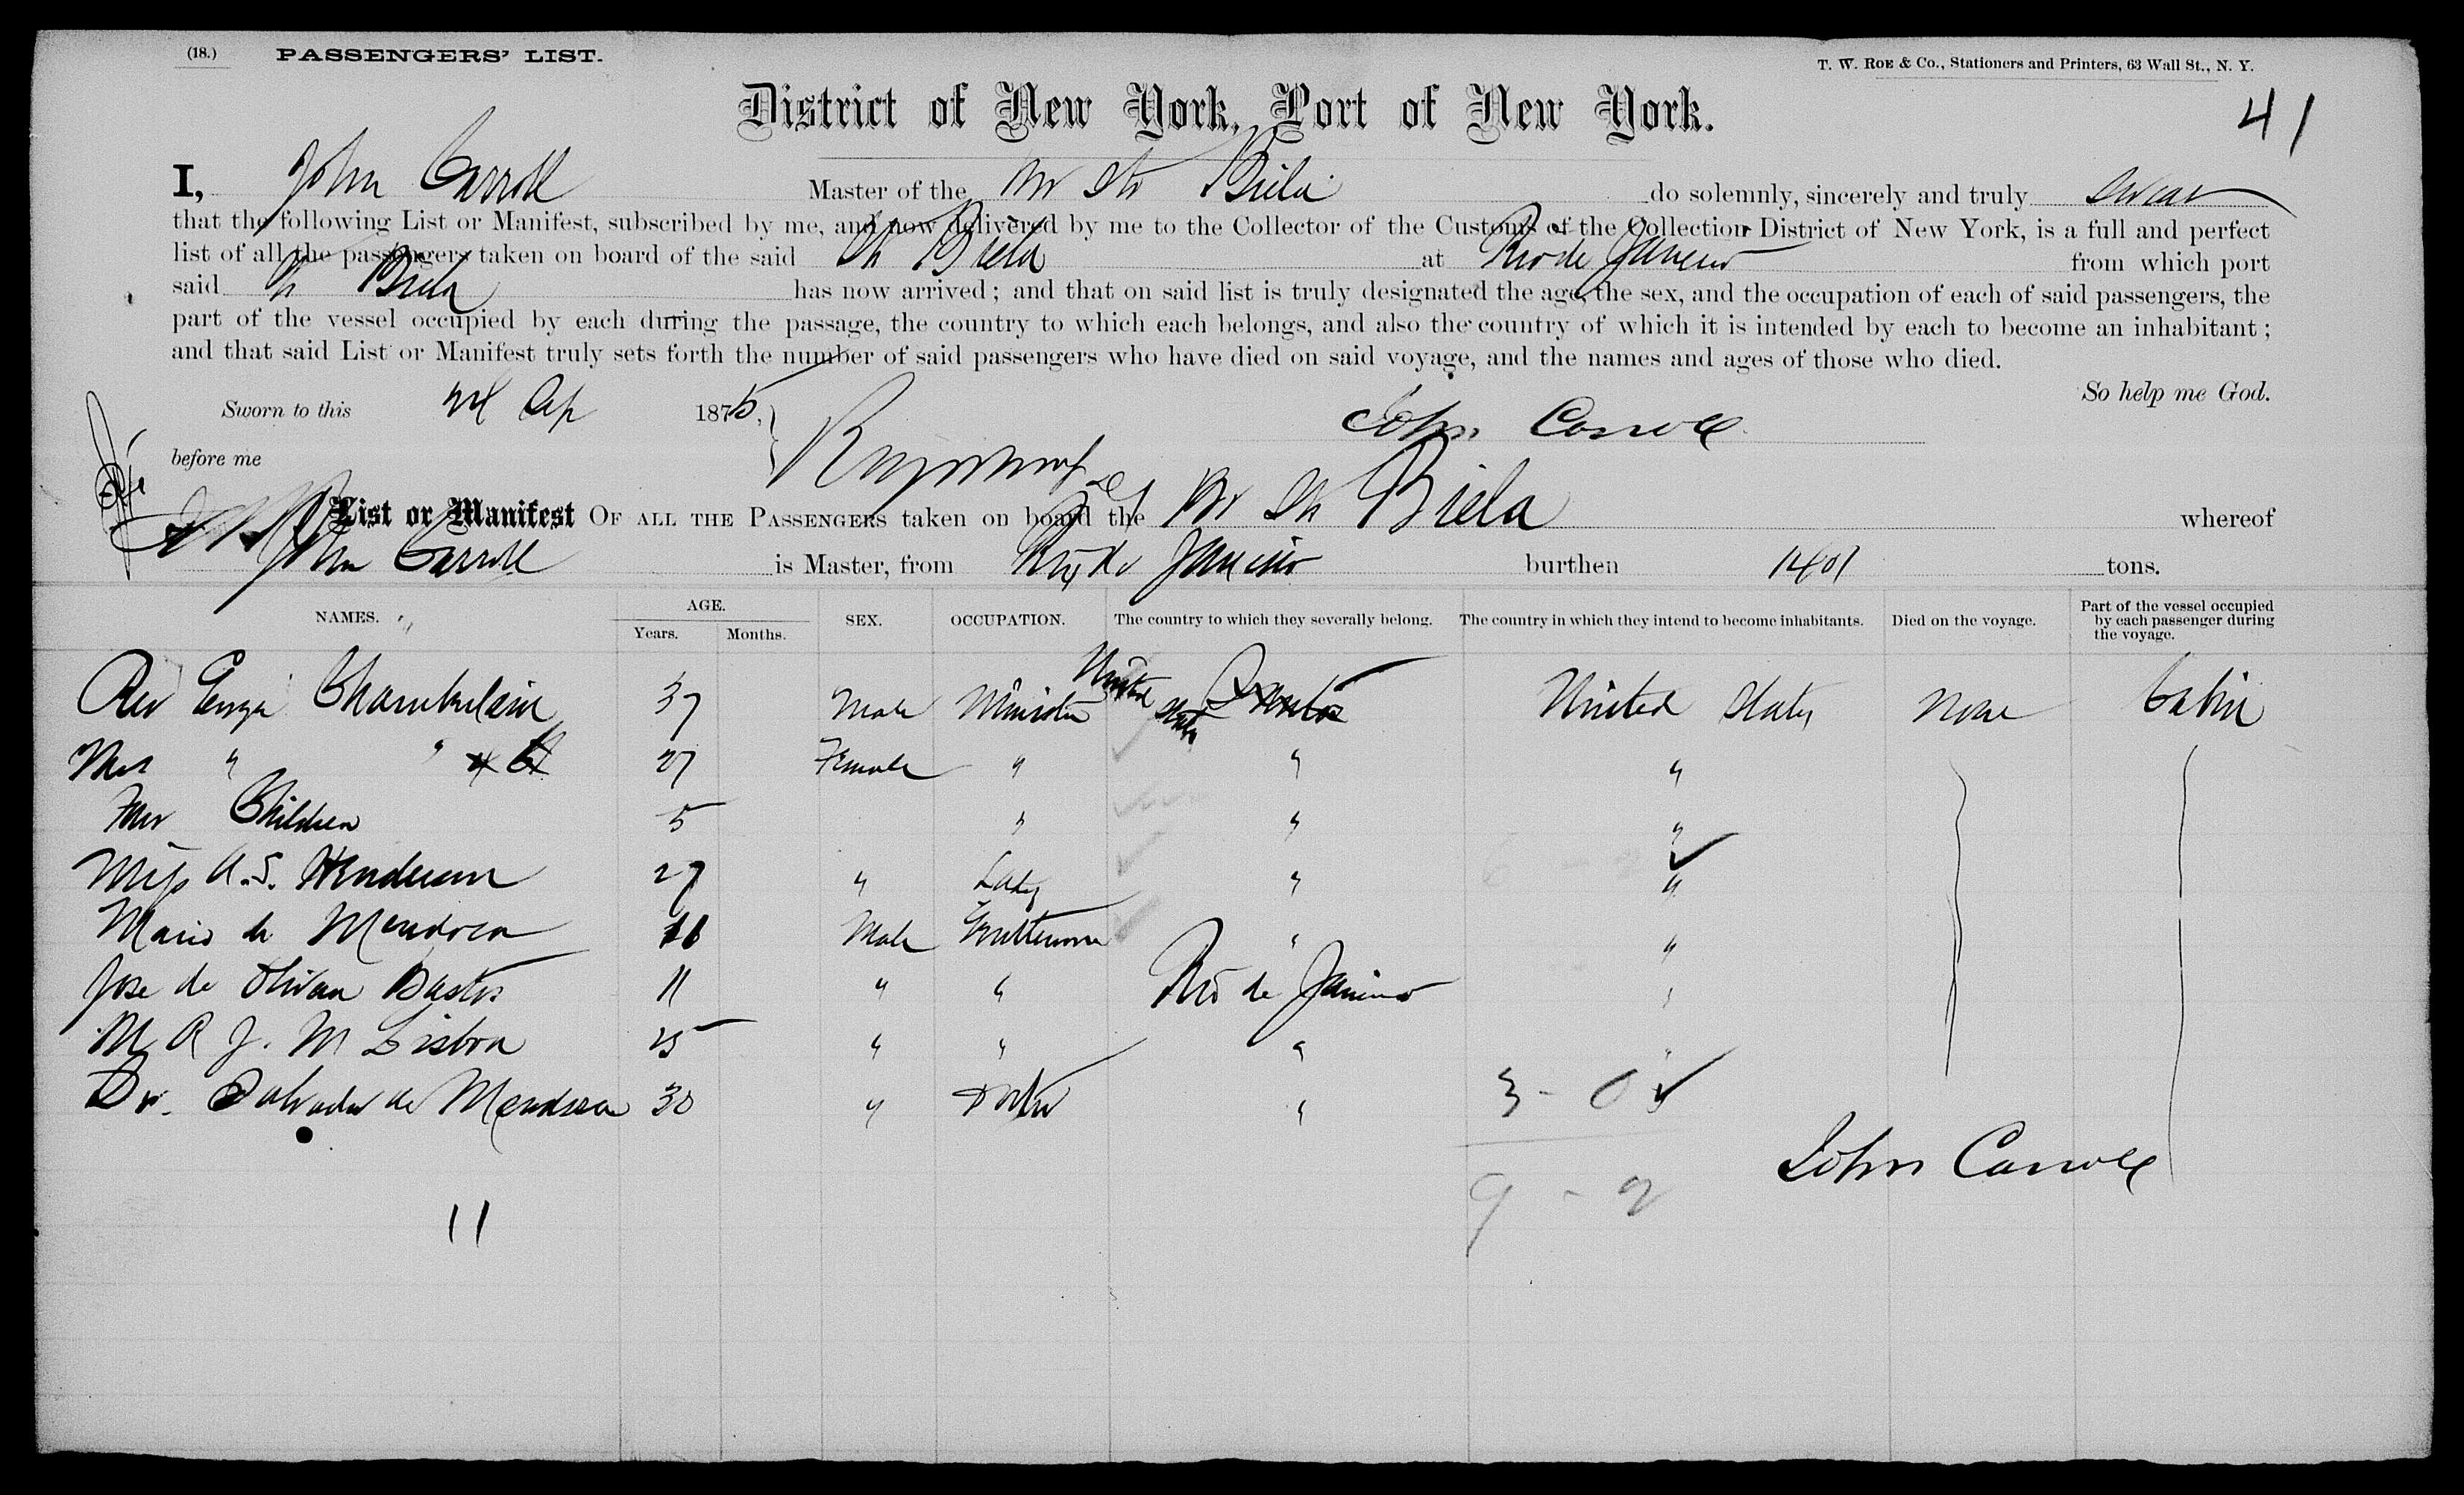 (18.) PASSENGERS' LIST.
T. W. ROE & Co., Stationers and Printers, 63 Wall St., N. Y.
District of New York, Port of New York.
41
I, John Carroll Master of the Br Str Biela do solemnly, sincerely and truly swear
that the following List or Manifest, subscribed by me, and now delivered by me to the Collector of the Customs of the Collection District of New York, is a full and perfect
list of all the passengers taken on board of the said Str Biela at Rio de Janeiro from which port
said Str Biela has now arrived; and that on said list is truly designated the age, the sex, and the occupation of each of said passengers, the
part of the vessel occupied by each during the passage, the country to which each belongs, and also the country of which it is intended by each to become an inhabitant;
and that said List or Manifest truly sets forth the number of said passengers who have died on said voyage, and the names and ages of those who died.
So help me God.
Sworn to this 1875,
John Carroll
before me
List or Manifest OF ALL THE PASSENGERS taken on board the Br Str Biela whereof
John Carroll is Master, from Rio de Janeiro burthen 1401 tons.
NAMES. AGE. Years. Months. SEX. OCCUPATION. The country to which they severally belong. The country in which they intend to become inhabitants. Died on the voyage. Part of the vessel occupied by each passenger during the voyage.
Rev Chamberlain 37 Male Minister United States United States None Cabin
Mrs " " 27 Female " " "
Four Children 5 " " "
Miss A. S. Henderson 27 " Lady " "
Mario de Mendoca Male Gentleman " "
Jose de Olivan Bastos 11 " " Rio de Janeiro "
M R J. M Lisboa 25 " " " "
Dr. Salvador de Mendoca 30 " Doctor "
3 - 0
John Carroll
9 - 2
11